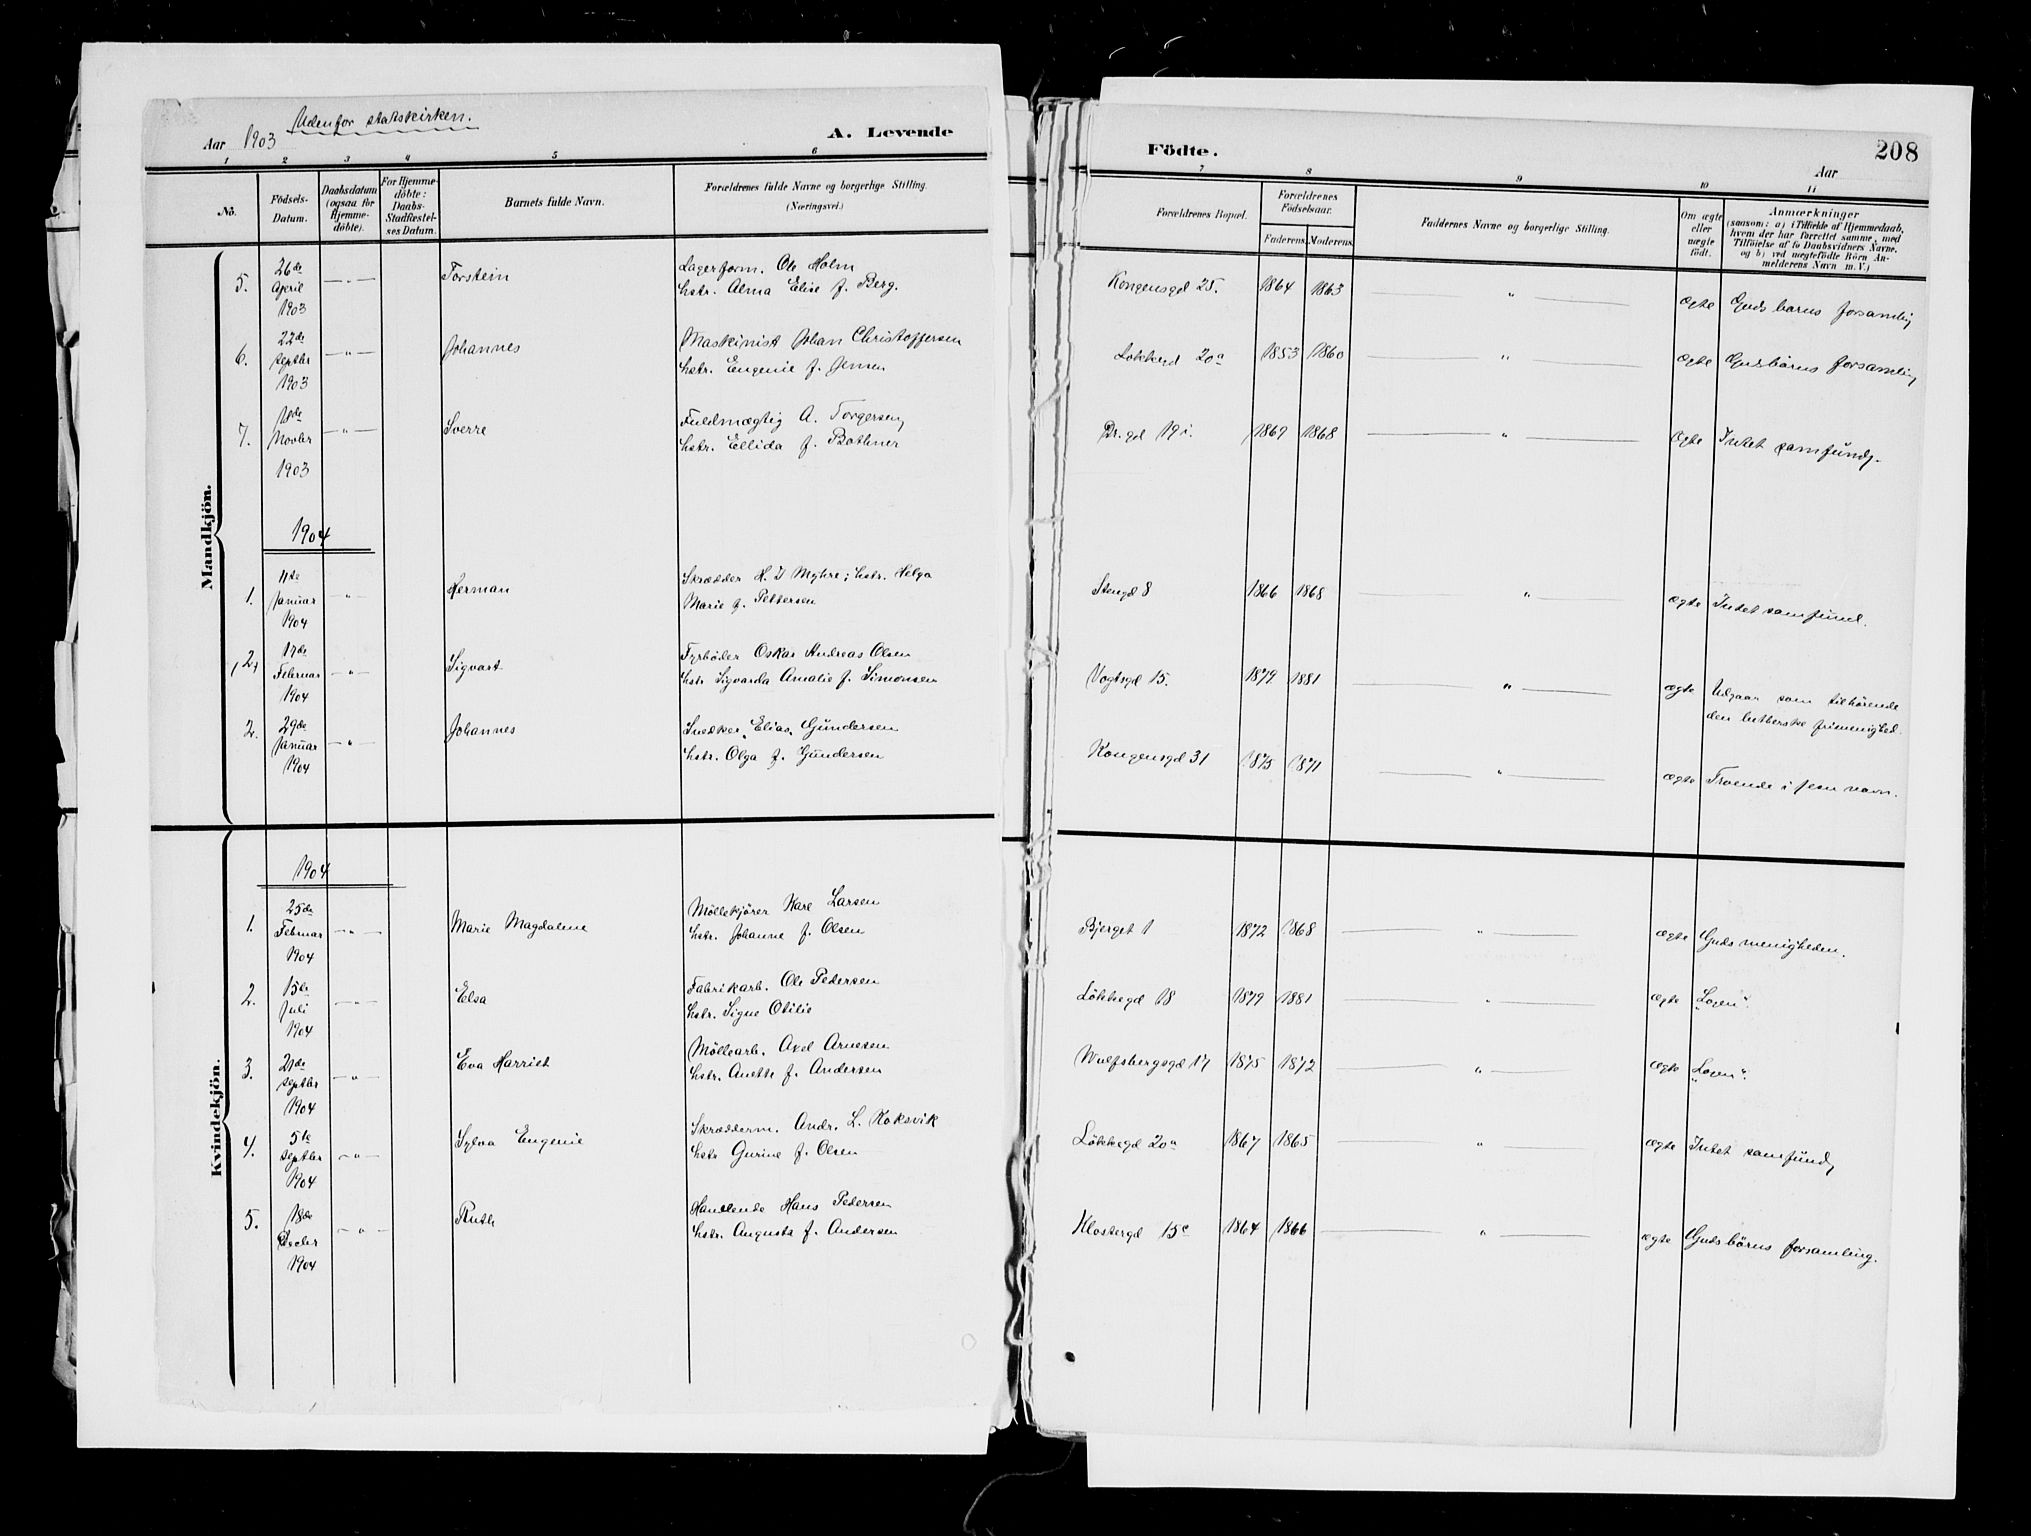 Udenfor statskirken.
Aar 1903
A. Levende
Födte.
Aar
208
1 2 3 4 5 6
7 8 9 10 11
No.
Födsels-
Datum.
Daabsdatum
(ogsaa for
Hjemme-
döbte).
For Hjemme-
döbte:
Daabs-
Stadfæstel-
ses Datum.
Barnets fulde Navn.
Forældrenes fulde Navne og borgerlige Stilling.
(Næringsvei.)
Forældrenes Bopæl.
Forældrenes
Födselsaar.
Faderens. Moderens.
Faddernes Navne og borgerlige Stilling.
Om ægte
eller
uægte
födt.
Anmærkninger
(saasom: a) i Tilfælde af Hjemmedaab,
hvem der har forrettet samme, med
Tilföielse af to Daabsvidners Navne,
og b) ved uægtefödte Börn An-
melderens Navn m. V.)
Mandkjön.
5. 26de April 1903 — „ — Torstein
Lagerform. Ole Holm
hstr. Alma Elise f. Berg.
Kongensgd 25. 1864 1863 — „ — ægte Guds barns forsamling
6. 22de Septbr 1903 — „ — Johannes
Maskinist Johan Christoffersen
hstr. Eugenie f. Jensen
Løkkegd 20a 1853 1860 — „ — ægte Gudsbørns forsamling
7. 18de Novbr 1903 — „ — Sverre
Fuldmægtig A. Torgersen
hstr. Ellida f. Bothner
Dr. gd 19 i. 1869 1868 — „ — ægte Intet samfund.
1904
1. 11te Januar 1904 — „ — Herman
Skrædder H. I Myhre; hstr. Helga
Marie f. Pettersen
Stengd 8 1866 1868 — „ — ægte Intet samfund.
2. 17de Februar 1904 — „ — Sigvart
Fyrbøder Oskar Andreas Olsen
hstr Sigvarda Amalie f. Simonsen
Vogtsgd 15. 1879 1881 — „ — ægte Udgaar som tilhørende
den lutherske frimenighed.
2. 29de Januar 1904 — „ — Johannes
Snedker Elias Gundersen
hstr. Olga f. Gundersen
Kongensgd 31 1875 1871 — „ — ægte Troende i Jesu navn.
Kvindekjön.
1904
1. 25de Februar 1904 — „ — Marie Magdalene
Møllekjører Karl Larsen
hstr. Johanne f. Olsen
Bjerget 1 1872 1868 — „ — ægte Guds menigheden.
2. 15de Juli 1904 — „ — Elsa
Fabrikarb. Ole Pedersen
hstr. Signe Otilie
Løkkegd 18 1879 1881 — „ — ægte „Logen“.
3. 21de Septbr 1904 — „ — Eva Harriet
Møllearb. Axel Arnesen
hstr. Anette f. Andersen
Wulfsbergsgd 17 1875 1872 — „ — ægte „Logen“.
4. 5te Septbr 1904 — „ — Sylva Eugenie
Skrædderm. Andr. L. Roksvik
hstr Gurine f. Olsen
Løkkegd 20a 1867 1865 — „ — ægte Intet samfund
5. 18de 1904 — „ — Ruth
Handlende Hans Pedersen
hstr. Augusta f. Andersen
Klostergd 15c 1864 1866 — „ — ægte Gudsbørns forsamling.